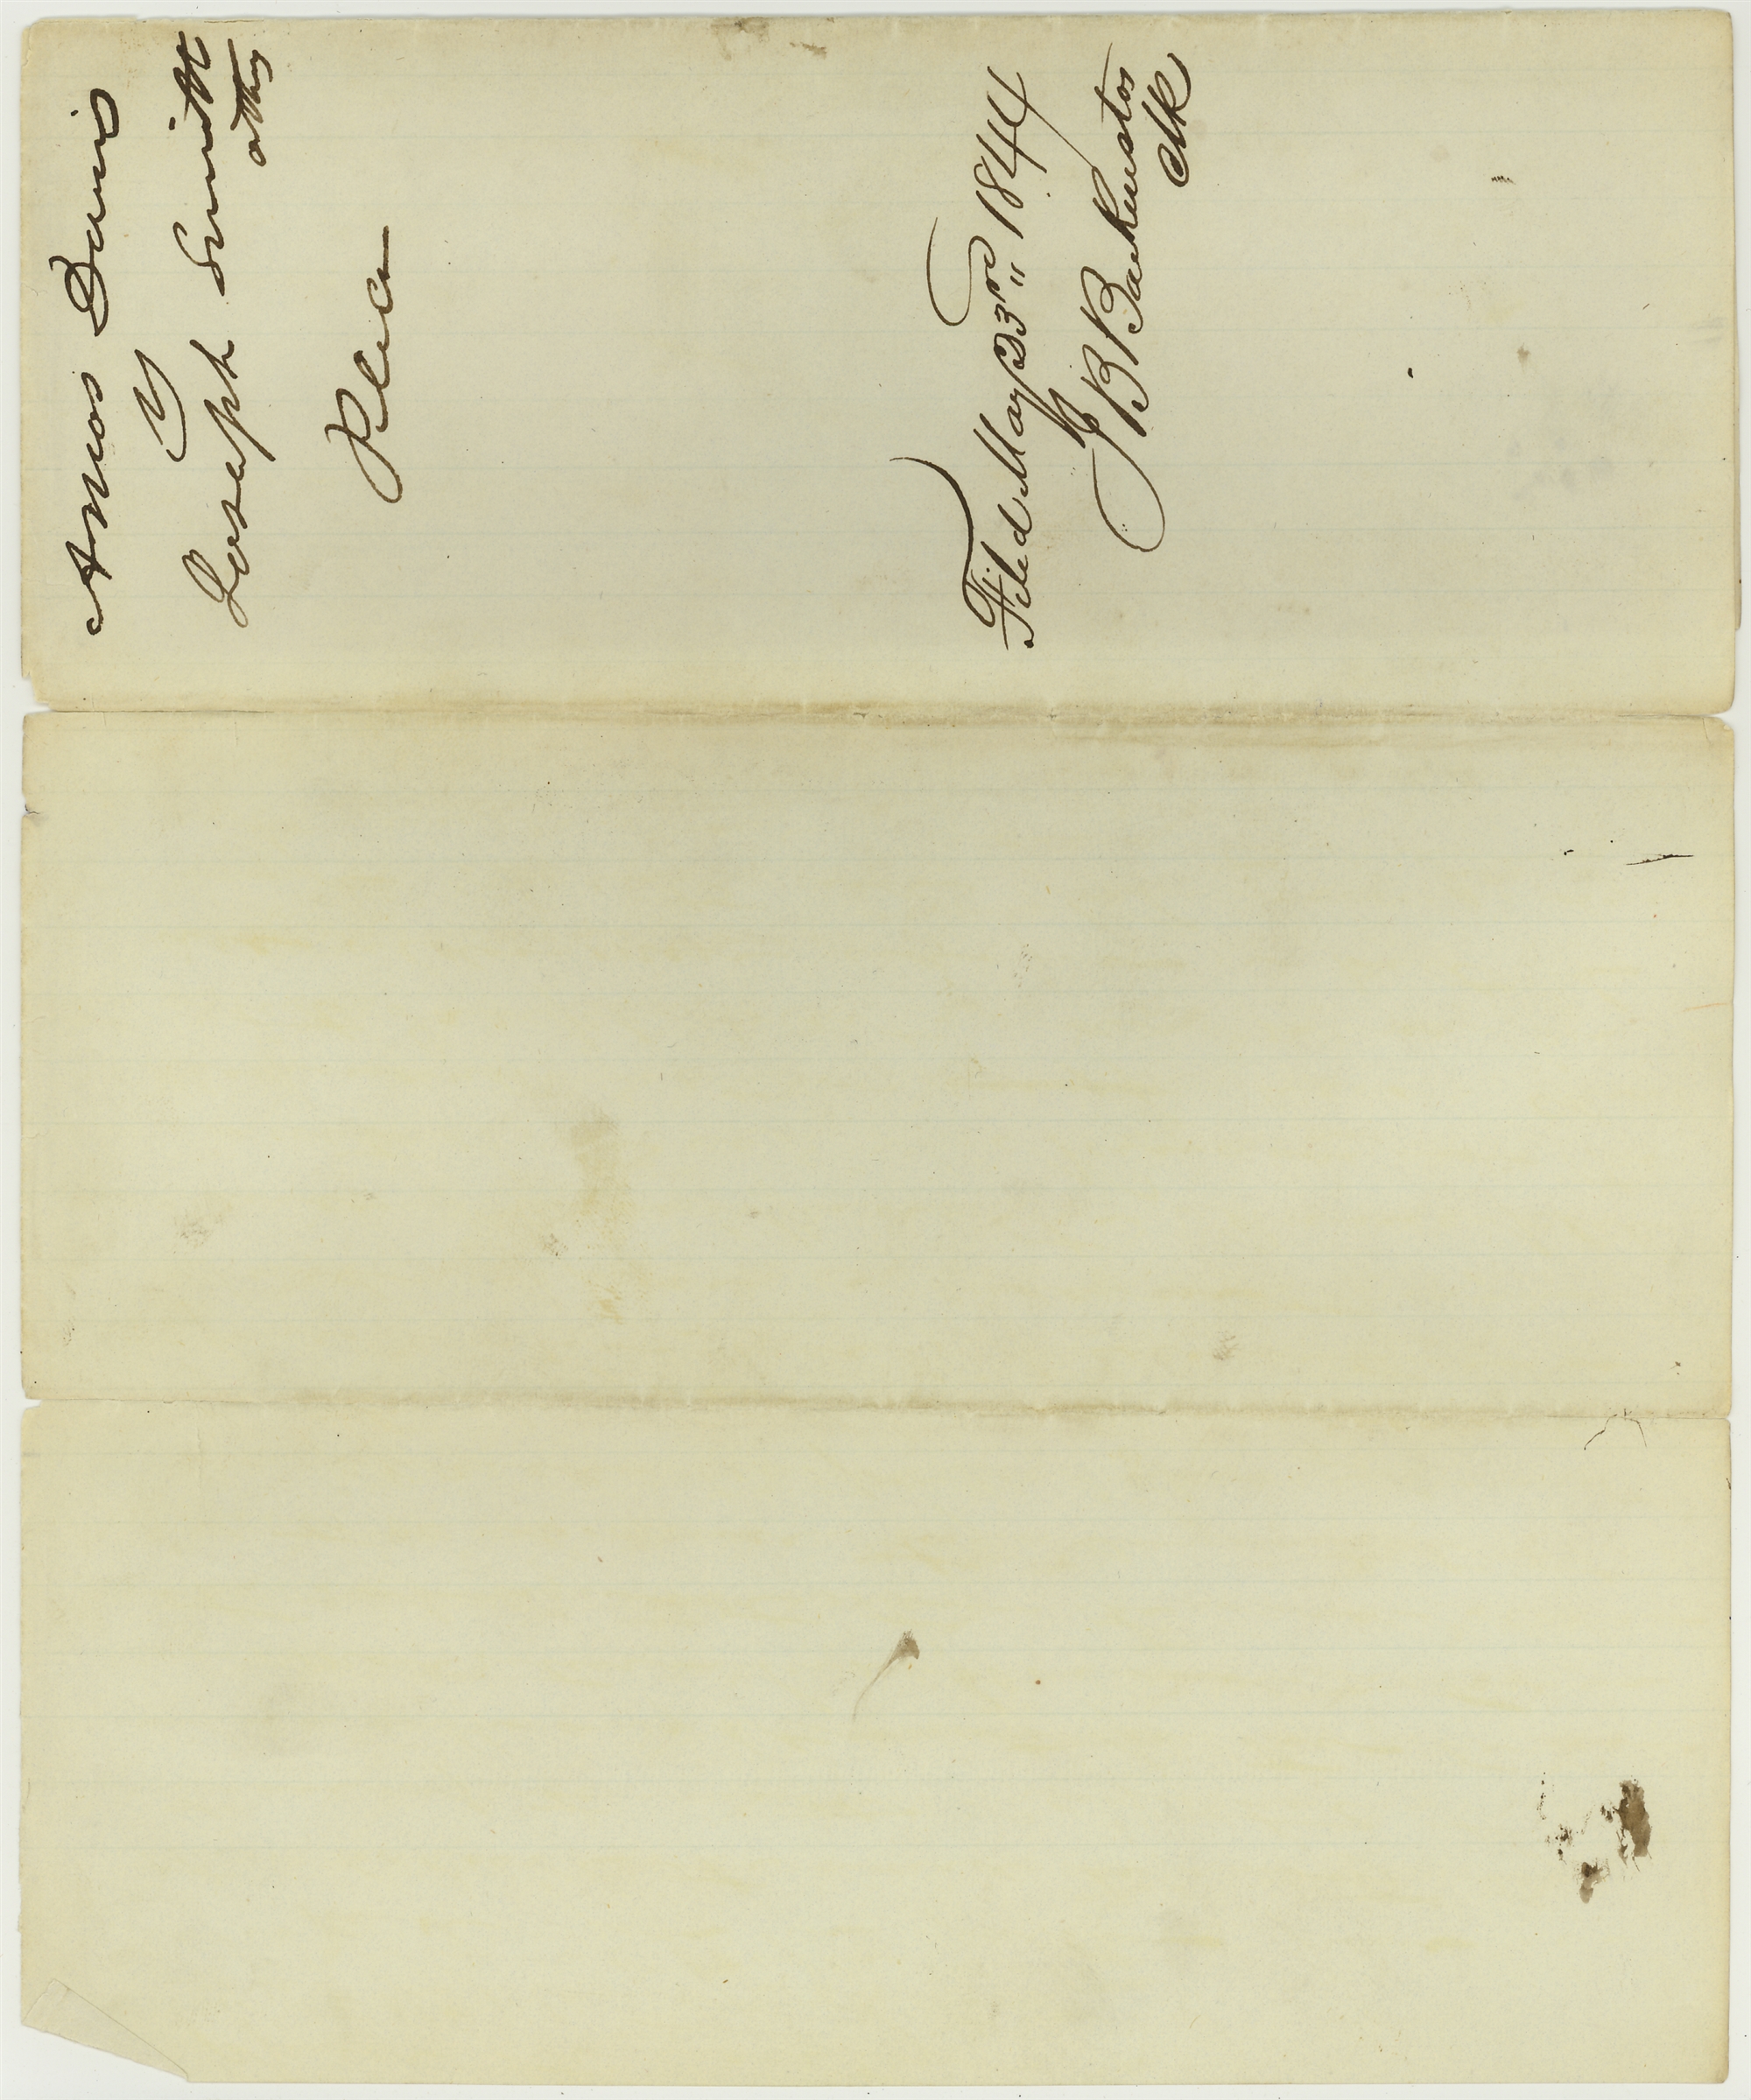 Amos Davis
vs
Joseph Smith
Plea
Filed May 23rd 1844
J B Backenstos
Clk